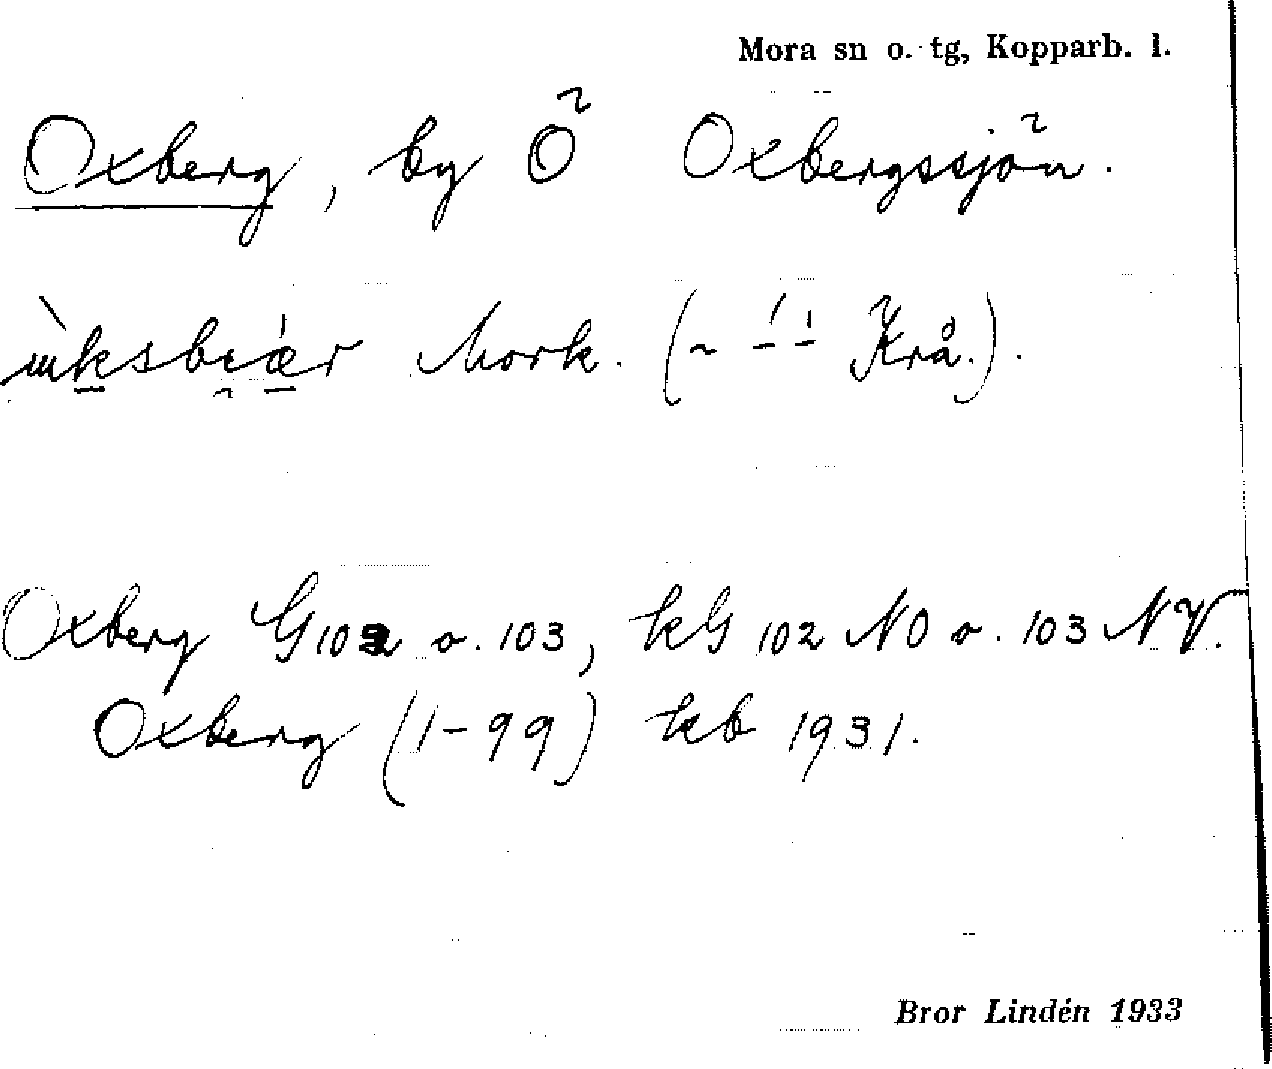 Mora sn o. tg, Kopparb. l.
Oxberg, by Ö Oxbergssjön.
Mork. (~ – – Krå.).
Oxberg G 102 o. 103, kG 102 NO o. 103 NV.
Oxberg (1-99) kb 1931.
Bror Lindén 1933